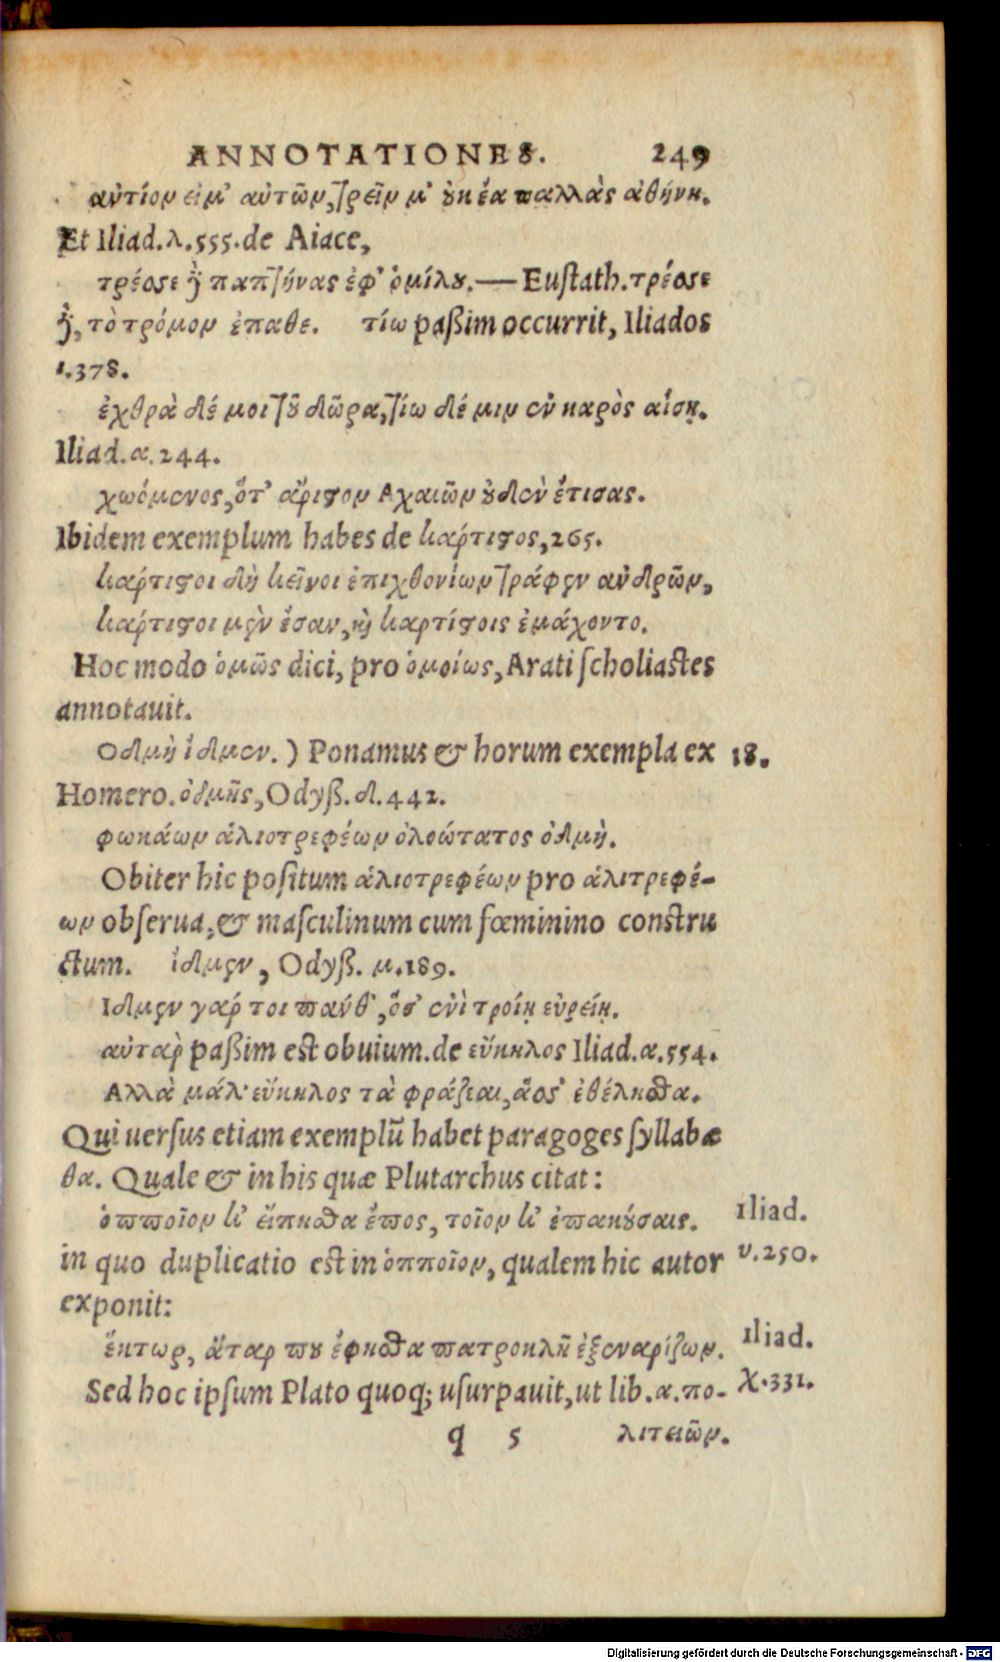 ANNOTATIONES. 249
αὐτίον εἰμ' αὐτῶν, τρεῖν μ' οὐκ ἔα παλλὰς ἀθήνη.
Et Iliad.λ.555.de Aiace,
τρέσσε δὲ παπτήνας ἐφ' ὁμίλου.— Eustath. τρέσσε
δὲ, τὸ τρόμον ἔπαθε. τίω paßim occurrit, Iliados
ι.378.
ἐχθρὰ δέ μοι τοῦ δῶρα, τίω δέ μιν ἐν καρὸς αἴσῃ.
Iliad.α.244.
χωόμενος, ὅτ' ἄριστον Αχαιῶν οὐδὲν ἔτισας.
Ibidem exemplum habes de κάρτιστος, 265.
κάρτιστοι δὴ κεῖνοι ἐπιχθονίων τράφεν ἀνδρῶν,
κάρτιστοι μὲν ἔσαν, καὶ καρτίστοις ἐμάχοντο.
Hoc modo ὁμῶς dici, pro ὁμοίως, Arati scholiastes
annotauit.
Οδμὴ ἴδμεν.) Ponamus & horum exempla ex 18.
Homero. ὀδμῆς, Odyß. δ.442.
φωκάων ἁλιοτρεφέων ὀλοώτατος ὀδμή.
Obiter hic positum ἁλιοτρεφέων pro ἁλιτρεφέ-
ων obserua, & masculinum cum fœminino constru
ctum. ἴδμεν, Odyß. μ.189.
Ιδμεν γάρ τοι πάνθ', ὅσ' ἐνὶ τροίῃ εὐρείῃ.
αὐτὰρ paßim est obuium. de εὔκηλος Iliad.α.554.
Αλλὰ μάλ' εὔκηλος τὰ φράζεαι, ἅσσ' ἐθέλησθα.
Qui uersus etiam exemplū habet paragoges syllabæ
θα. Quale & in his quæ Plutarchus citat:
ὁπποῖον κ' εἴπησθα ἔπος, τοῖον κ' ἐπακούσαις. Iliad.
in quo duplicatio est in ὁπποῖον, qualem hic autor υ.250.
exponit:
ἕκτωρ, ἄταρ που ἔφησθα πατροκλῆ' ἐξεναρίζων. Iliad.
Sed hoc ipsum Plato quoq; usurpauit, ut lib.α.πο- χ.331.
q 5 λιτειῶν.
Digitalisierung gefördert durch die Deutsche Forschungsgemeinschaft - DFG